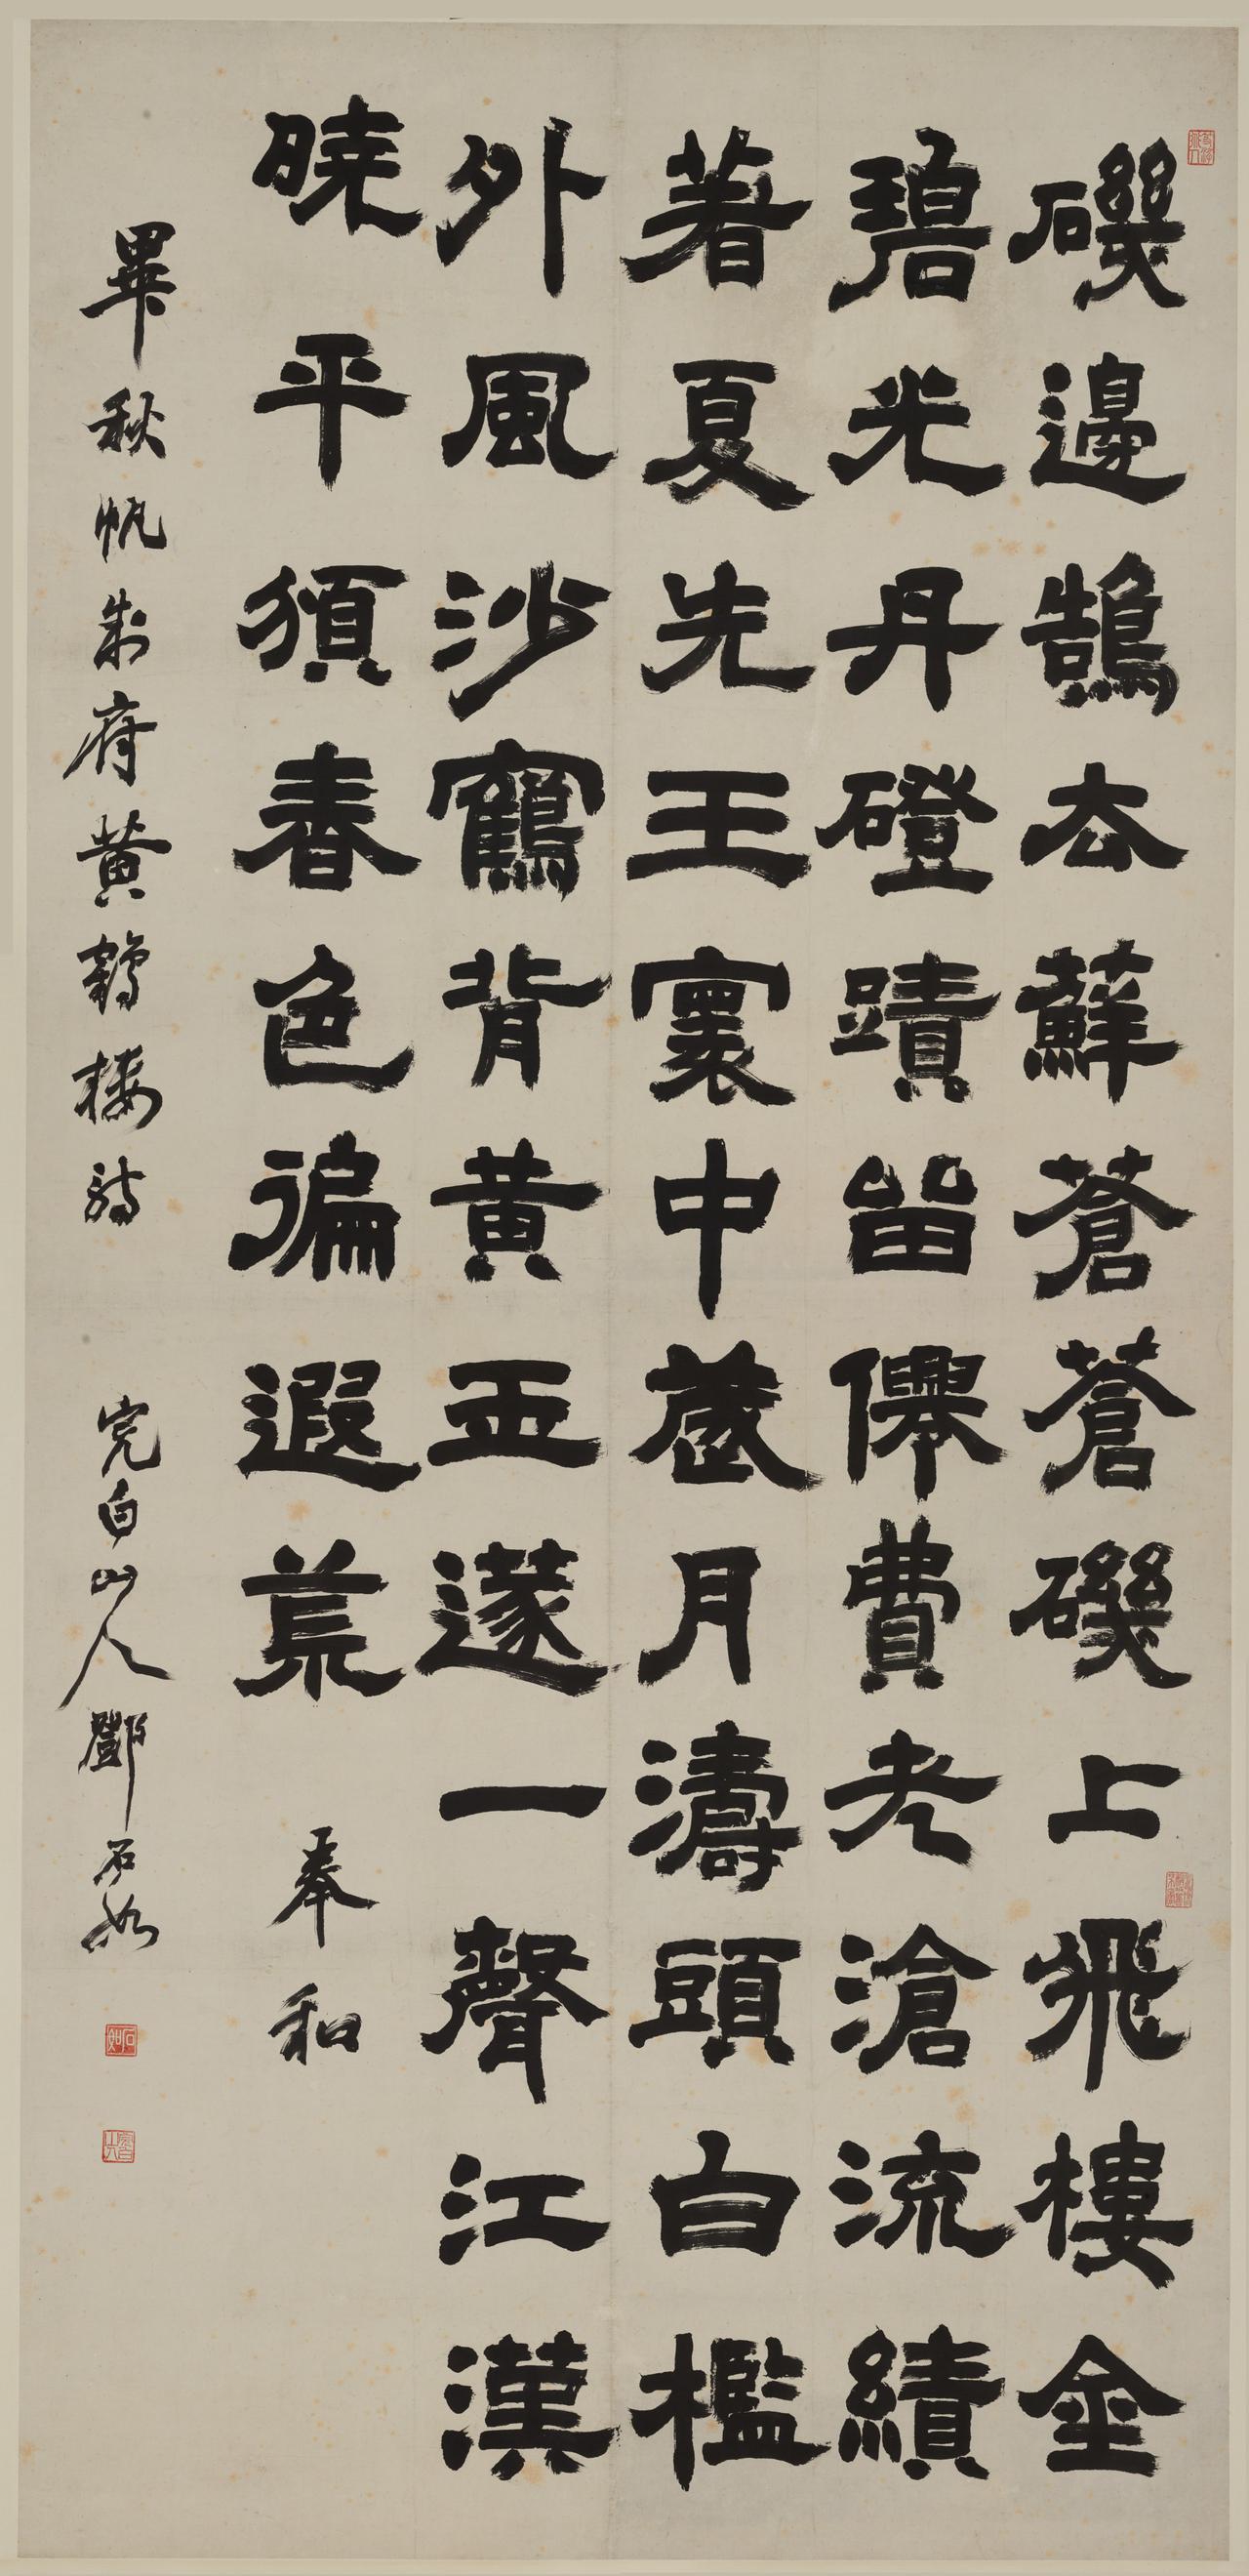 磯邊鵠去蘚蒼蒼磯上飛樓金
碧光丹磴蹟留僊費老滄流績
著夏先王寰中歲月濤頭白檻
外風沙鶴背黃玉篴一聲江漢
曉平頒春色徧遐荒 奉和
畢秋帆制府黃鶴樓詩 完白山人鄧石如
石如